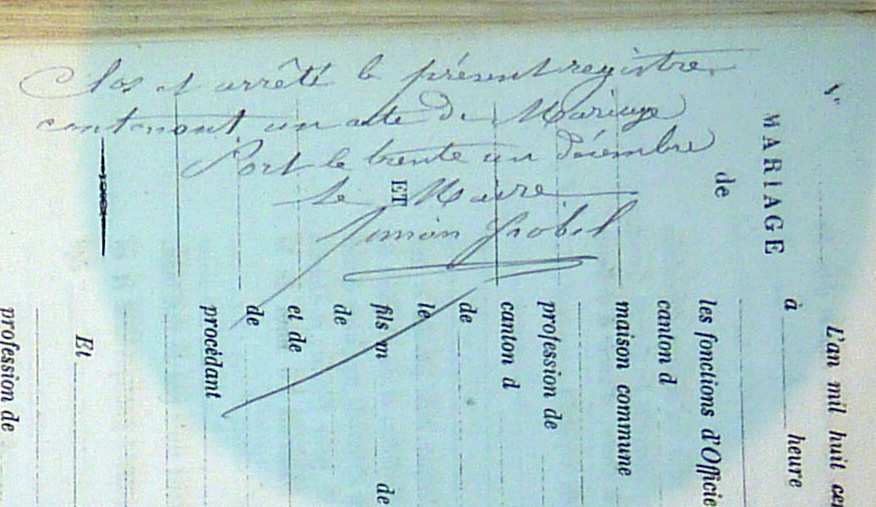 Clos et arrêté le présent registre
contenant un acte de Mariage
Port le trente un décembre
Le Maire
L'an mil huit cen
à heure
MARIAGE
de
ET
les fonctions d'Officie
canton d
maison commune
profession de
canton d
de
le
fils m de
de
et de
de
procédant
Et
profession de